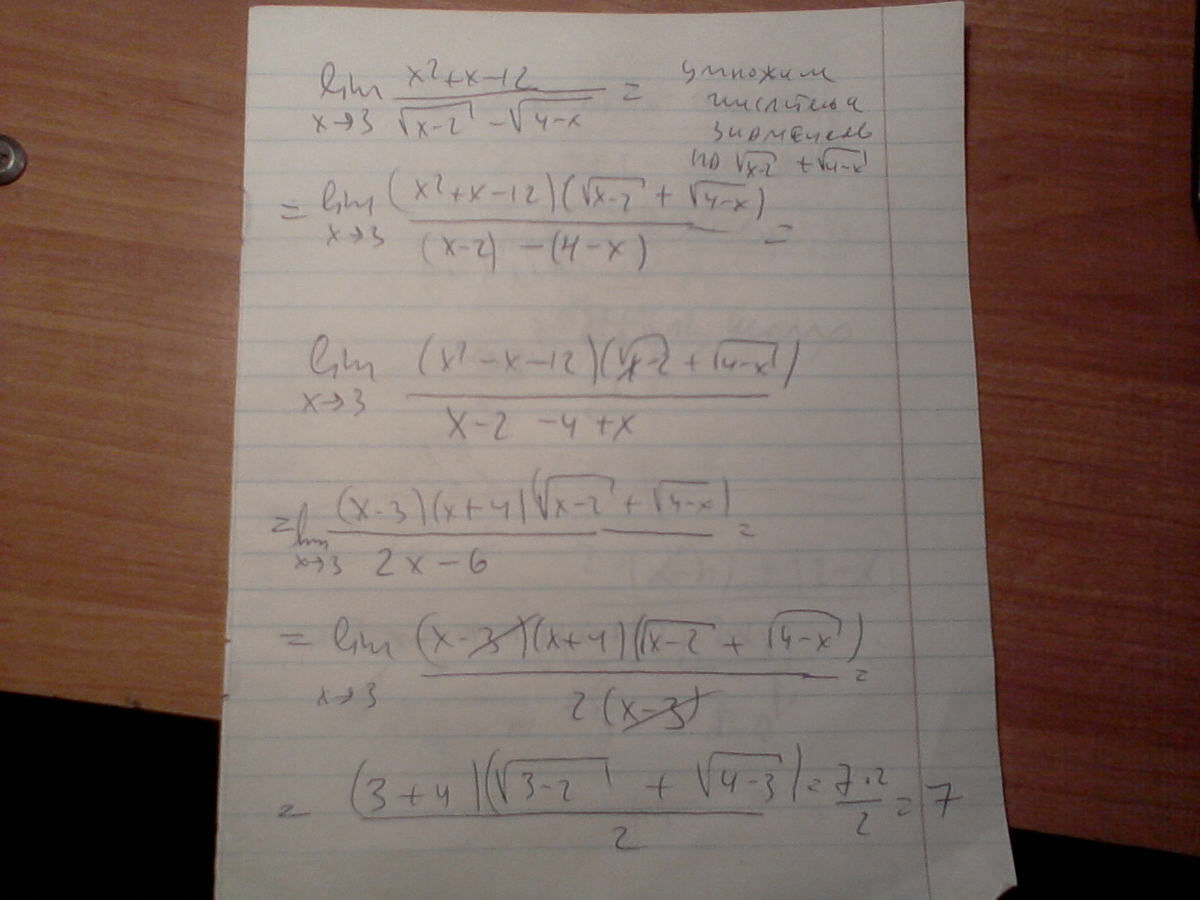 lim x→3 (x²+x-12)/(√(x-2) - √(4-x)) =
умножим
числитель и
знаменатель
на √(x-2) + √(4-x)
= lim x→3 ((x²+x-12)(√(x-2) + √(4-x)))/((x-2) - (4-x)) =
lim x→3 ((x²-x-12)(√(x-2) + √(4-x)))/(x-2-4+x)
= lim x→3 ((x-3)(x+4)(√(x-2) + √(4-x)))/(2x-6) =
= lim x→3 ((x-3)(x+4)(√(x-2) + √(4-x)))/(2(x-3)) =
= ((3+4)(√(3-2) + √(4-3)))/2 = (7·2)/2 = 7